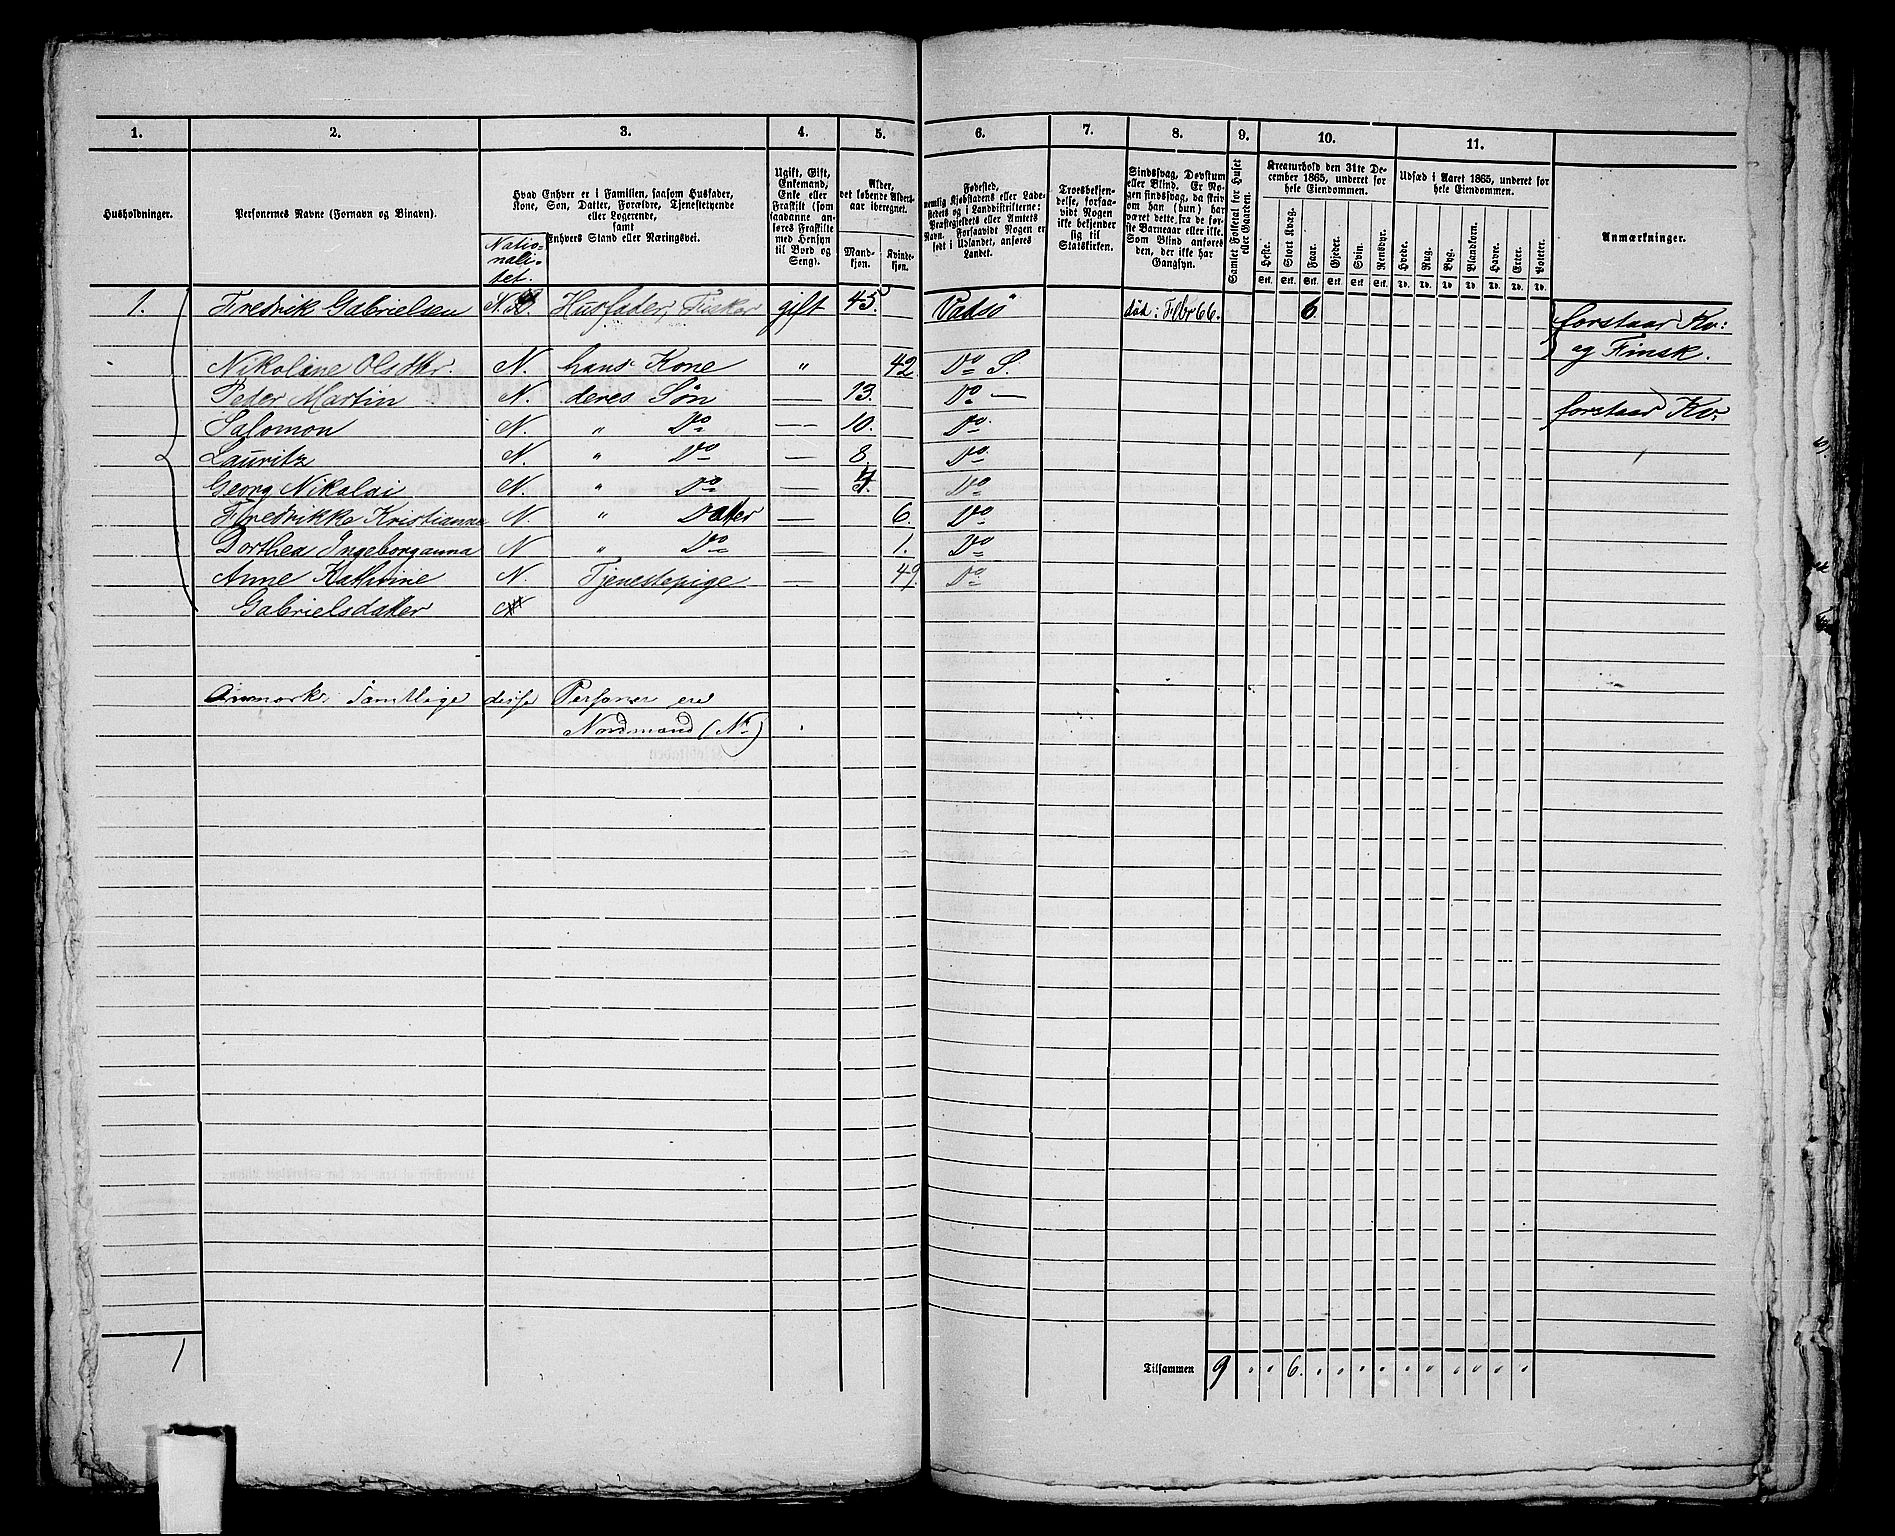 1. 2. 3. 4. 5. 6. 7. 8. 9. 10. 11.
Husholdninger.
Personernes Navne (Fornavn og Binavn).
Hvad Enhver er i Familien, saasom Husfader,
Kone, Søn, Datter, Forældre, Tjenestetyende
eller Logerende,
samt
Enhvers Stand eller Næringsvei.
Natio-
nali-
tet.
Ugift, Gift,
Enkemand,
Enke eller
Fraskilt (som
saadanne an-
føres Fraskilte
med Hensyn
til Bord og
Seng).
Alder,
det løbende Alders-
aar iberegnet.
Mand-
kjøn.
Kvinde-
kjøn.
Fødested,
nemlig Kjøbstadens eller Lade-
stedets og i Landdistrikterne:
Præstegjeldets eller Amtets
Navn. Forsaavidt Nogen er
født i Udlandet, anføres
Landet.
Troesbekjen-
delse, forsaa-
vidt Nogen
ikke bekjender
sig til
Statskirken.
Sindssvag, Døvstum
eller Blind. Er No-
gen sindssvag, da skri-
som han (hun) har
været dette, fra de før-
ste Barneaar eller ikke.
Som Blind anføres
den, der ikke har
Gangsyn.
Samlet Folketal for Huset
eller Gaarden.
Kreaturhold den 31te De-
cember 1865, underet for
hele Eiendommen.
Heste. Stort Kvæg. Faar. Gjeder. Svin. Rensdyr.
Stk. Stk. Stk. Stk. Stk. Stk.
Udsæd i Aaret 1865, underet for
hele Eiendommen.
Hvede. Rug. Byg. Blandkorn. Havre. Erter. Poteter.
Td. Td. Td. Td. Td. Td. Td.
Anmærkninger.
1. Fredrik Gabrielsen N. Husfader, Fisker gift 45 Vadsø død: Febr 66. 6 forstaar Kv:
og Finsk.
Nikoline Olsdtr. N. hans Kone " 42. Do S.
Peder Martin N. deres Søn — 13. Do — forstaar Kv:
Salomon N. " Do — 10. Do
Lauritz N. " Do — 8. Do
Georg Nikolai N. " Do — Do
Fredrikke Kristianne N. " Datter — 6. Do
Dorthea Ingeborganna N " Do — 1. Do
Anne Kathrine N. Tjenestepige — 49. Do
Gabrielsdatter
Anmærk: Samtlige disse Personer ere
Nordmænd (N.)
1
Tilsammen 9 " " 6. " " " " " " " " " "